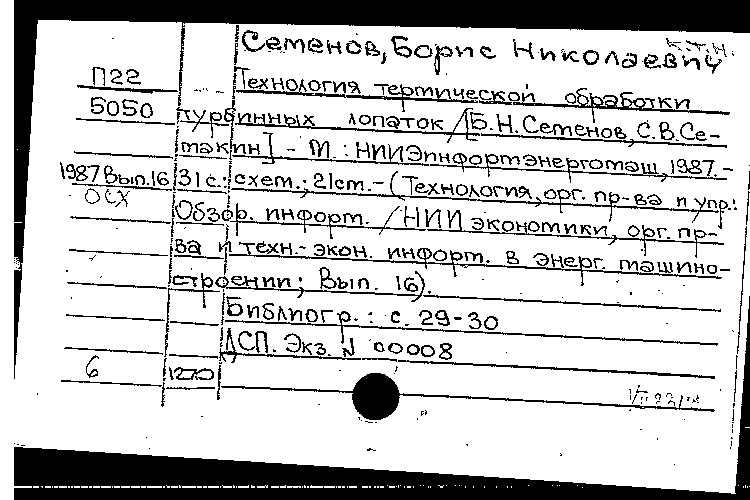 К.Т.Н.
Семенов, Борис Николаевич
П22 Технология термической обработки
5050 турбинных лопаток /[Б.Н. Семенов, С.В. Се-
макин] - М.: НИИЭинформэнергомаш, 1987. -
1987 Вып.16 31 с.: схем.; 21см. - (Технология, орг. пр-ва и упр.:
ОСХ Обзор. информ. / НИИ экономики, орг. пр-
ва и техн.-экон. информ. в энерг. машино-
строении; Вып. 16).
Библиогр.: с. 29-30
ДСП. Экз. N 00008
6 1270